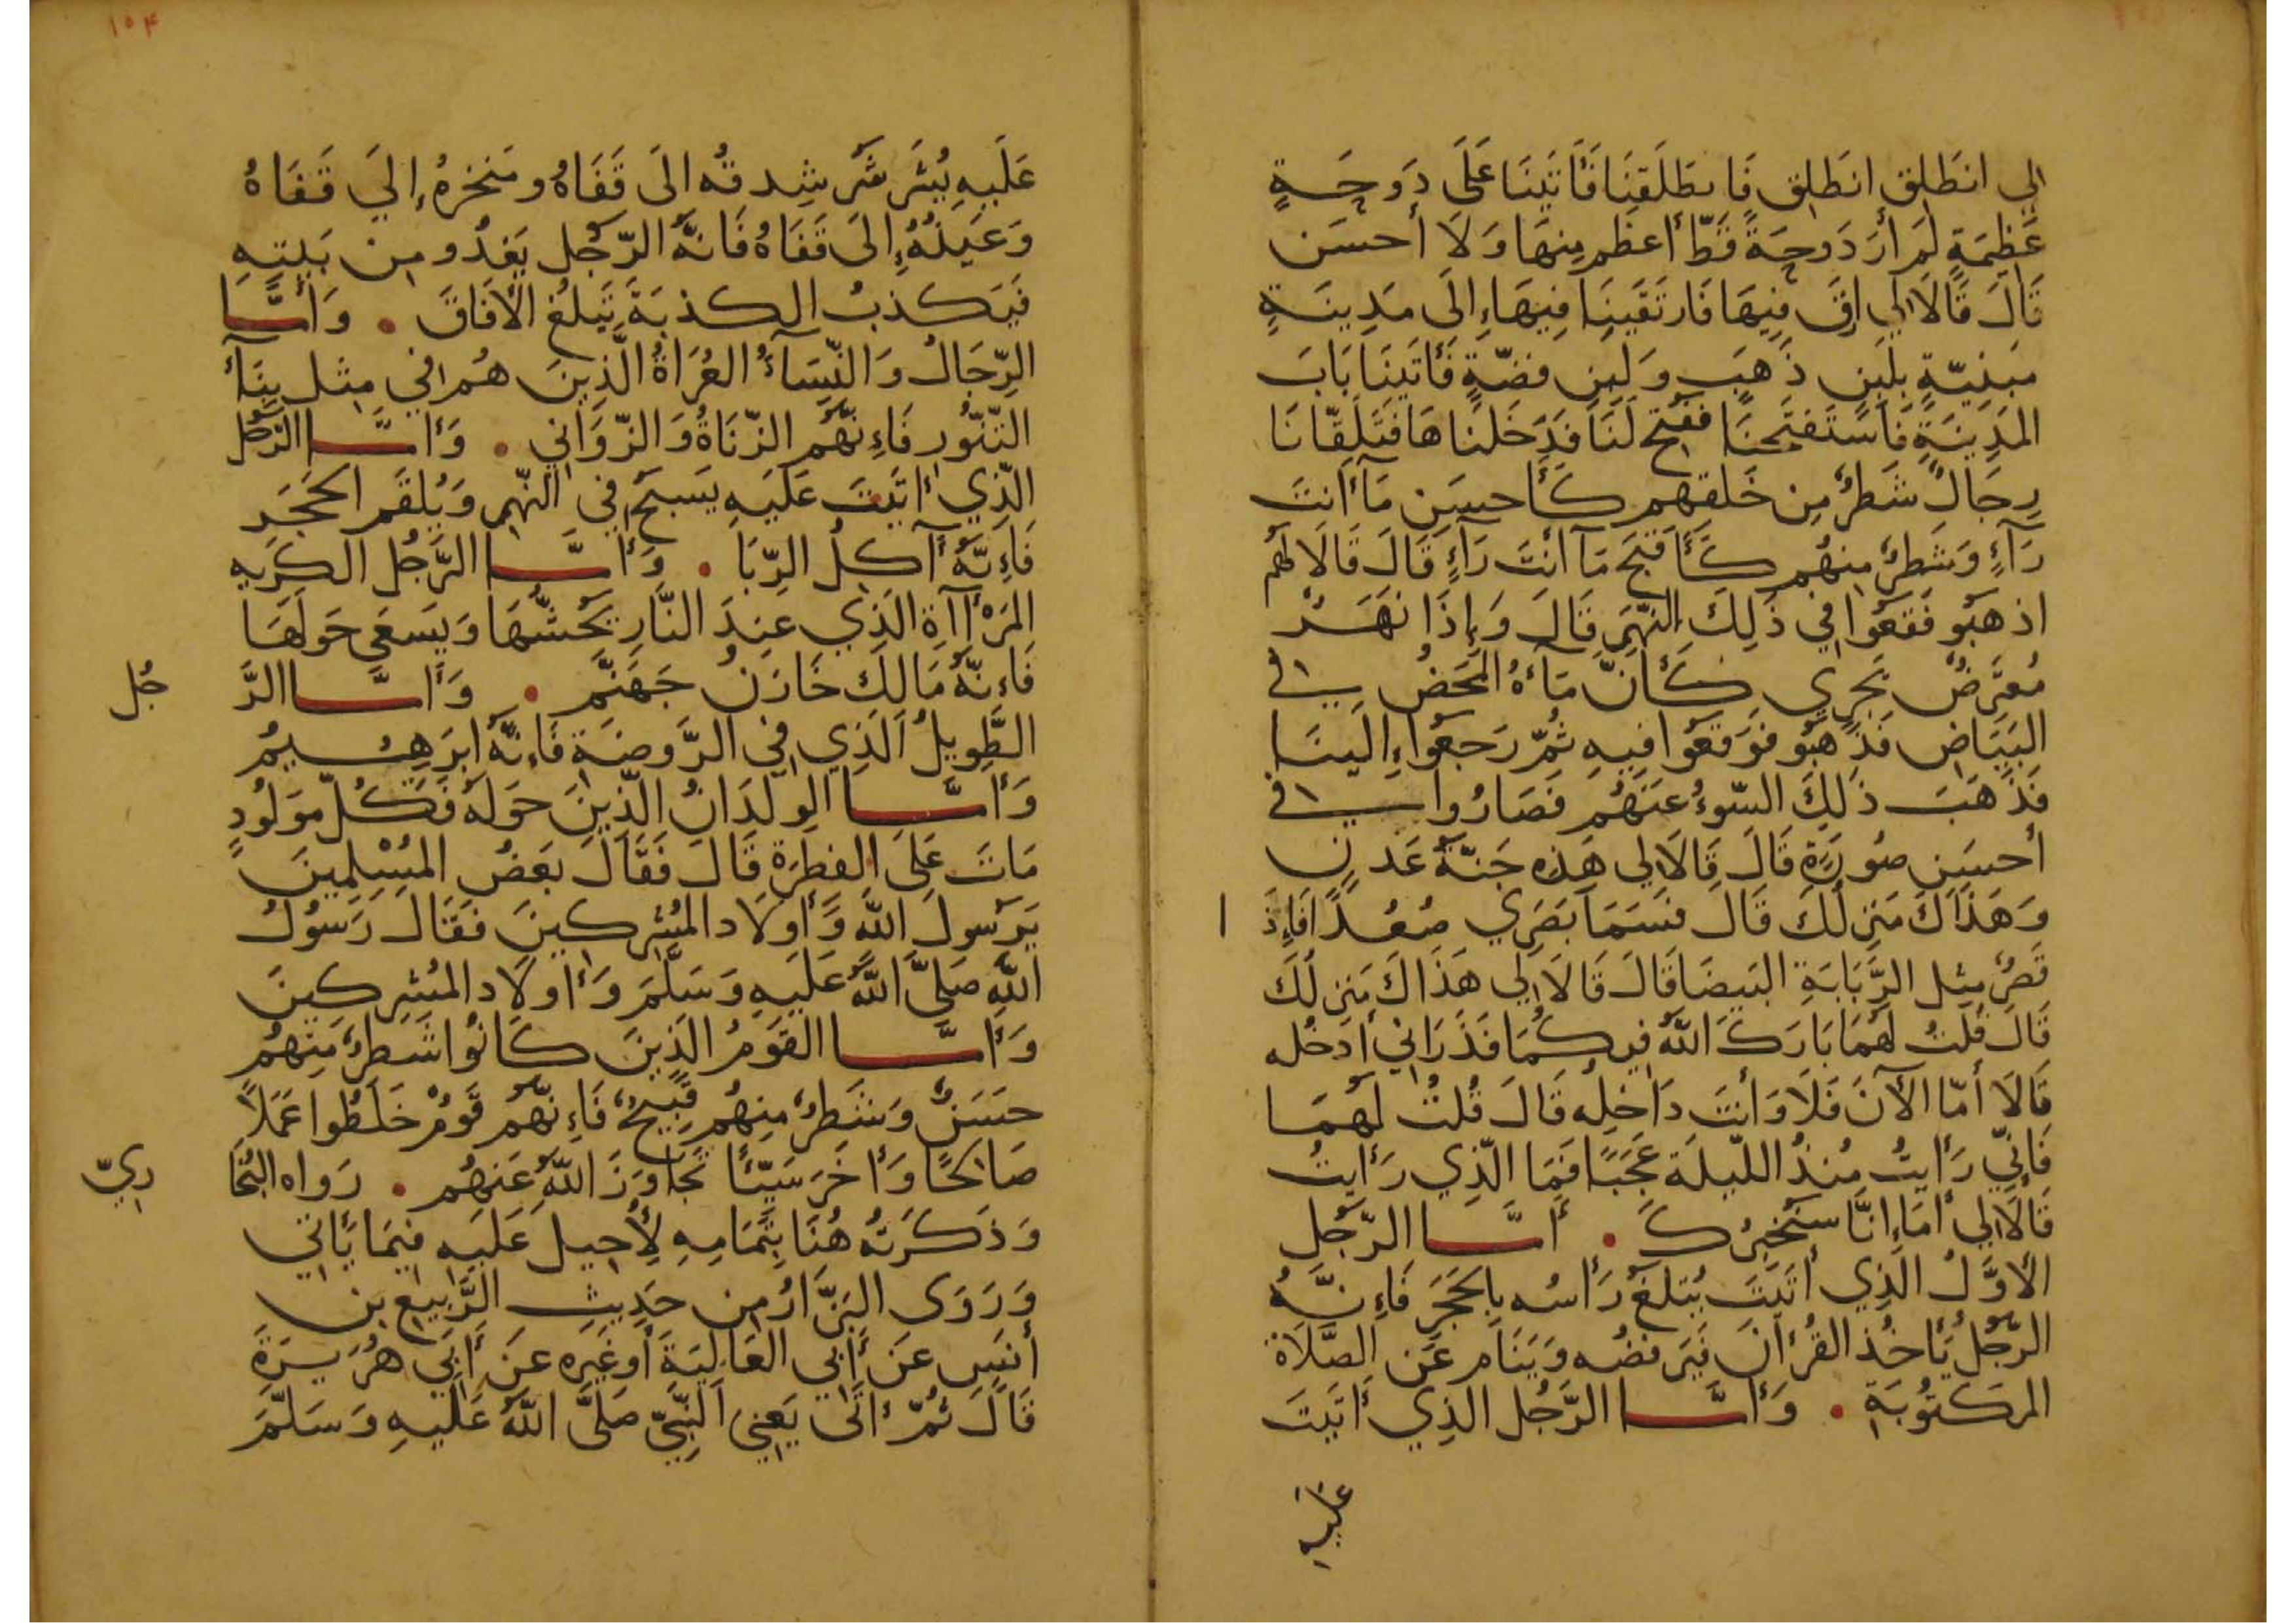 لي انطَلِق انطَلِق فَانطَلَقنَا فَأتَينَا عَلَى دَوحَةٍ
عَظِيمَةٍ لَم أرَ دَوحَةً قَطّ أعظَم مِنهَا وَلَا أحسَن
قَالَ قَالَا لِي ارقَ فِيهَا فَارتَقَينَا فِيهَا إِلَى مَدِينَةٍ
مَبنِيّةٍ بِلَبِنِ ذَهَبٍ وَلَبِنِ فضّةٍ فَأتَينَا بَابَ
المَدِينَةِ فَاستَفتَحنَا ففُتِح لَنَا فَدَخَلنَاهَا فَتَلَقّانَا
رِجَالٌ شَطرٌ مِن خَلقهِم كَأحسَنِ مَا أنتَ
رَآءٍ وَشَطرٌ مِنهُم كَأقبَح مَا أنتَ رَآءٍ قَالَ قَالَا لهُم
اذهَبُو فَقَعُوا فِي ذَلِكَ النّهَرِ قَالَ وَإِذَا نَهَرٌ
مُعتَرِضٌ يَجرِي كَأنّ مَآءهُ المَحضُ في
البَيَاضِ فَذَهَبُو فوَقَعُوا فِيهِ ثُمّ رَجَعُوا إِلَينَا
فَذَهَبَ ذَلِكَ السّوءُ عَنهُم فَصَارُوا في
أحسَنِ صُورَةٍ قَالَ قَالَا لِي هَذِهِ جَنّةُ عَدنٍ
وَهَذَاكَ مَنزِلُكَ قَال فسَمَا بَصَرِي صُعُدًا فَإِذَا
قَصرٌ مِثل الرَّبَابَةِ البَيضَا قَالَ قَالَا لِي هَذَاكَ مَنزِلُكَ
قَالَ قُلتُ لَهُمَا بَارَكَ اللهُ فِيكُمَا فَذَرَانِي أدخُله
قَالَا أمّا الآنَ فَلَا وَأنتَ دَاخِلُه قَالَ قُلتُ لَهُمَا
فَإنِّي رَأيتُ مُنذُ اللّيلَة عَجَبًا فَمَا الّذِي رَأيتُ
قَالَا لِي أمَا إِنَّا سَنُخبِرُكَ . أمَّا الرّجُل
الأوَّلُ الّذِي أتَيتَ يُثلَغُ رَأسُه بِالحَجَرِ فَإِنَّهُ
الرّجُلُ يَأخُذ القُرآنَ فَيَرفضُه وَيَنَام عَن الصَّلَاة
المَكتُوبَةِ . وَأمَّا الرَّجُل الذِي أتَيتَ
عَلَيهِ
١٥٤
عَلَيهِ يُشَرشَر شِدقُه الَى قَفَاهُ ومَنخرهُ إِلَي قَفَاهُ
وَعَينُهُ إِلَى قَفَاهُ فَانهُ الرّجُل يَغدُو من بَيتِهِ
فَيَكذبُ الكذبَةَ تَبلُغ الأفَاقَ . وَأمَّا
الرِّجَالُ وَالنِّسَآءُ العُرَاةُ الَّذِينَ هُم فِي مِثل بِنَآءِ
التّنّورِ فَإِنّهُم الزّنَاةُ وَالزّوَانِي . وَأمَّا الرّجُل
الّذِي أتَيتَ عَلَيهِ يَسبَحُ فِي النّهرِ وَيُلقَم الحَجَر
فَإِنّهُ آكلُ الرِّبَا . وَأمَّا الرَّجُل الكَرِيه
المَرْآةِ الَذِي عِندَ النَّارِ يَحُشّهَا وَيَسعَى حَولَهَا
فَإنّهُ مَالِك خَازنُ جَهَنَّم . وَأمَّا الرَّجُل
الطَّوِيلُ الَّذِي فِي الرَّوضَةِ فَإِنَّهُ ابرَهِيمُ
وَأمَّا الوِلدَانُ الّذِينَ حَولَهُ فَكُلّ مَولُودٍ
مَاتَ عَلَى الفِطرَةِ قَالَ فَقَالَ بَعضُ المُسْلِمِينَ
يَرَسولَ اللهِ وَأولَاد المُشرِكِينَ فَقَالَ رَسُولُ
اللهِ صَلَّى اللهُ عَلَيهِ وَسَلّمَ وَأولَاد المُشرِكِينَ
وَأمَّا القَومُ الَذِينَ كَانُوا شَطرٌ مِنهُم
حسَنٌ وَشَطرٌ مِنهُم قَبِيحٌ فَإِنّهُم قَومٌ خَلَطُوا عَمَلاً
صَالِحًا وَأخَرَ سَيّئًا تَجَاوَزَ اللهُ عَنهُم . رَوَاه البُخَاريّ
وَذَكَرتُهُ هُنَا بِتَمَامِهِ لِأُحِيلَ عَلَيهِ فِيمَا يَأتِي
وَرَوَى البَزَّارُ مِن حَدِيثِ الرَّبِيعِ بنِ
أنَسٍ عَن أبِي العَالِيَةَ أو غَيرِه عَن أبِي هُرَيرَةَ
قَالَ ثُمّ أتَى يَعنِي النَّبِيّ صَلَّى اللهُ عَلَيهِ وَسَلّمَ